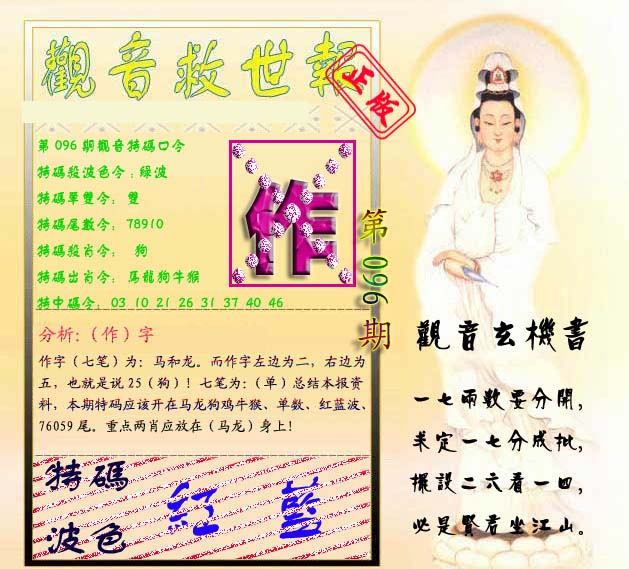 觀音救世報
正版
第096期觀音特碼口令
特碼殺波色令:綠波
特碼單雙令: 雙
特碼尾數令: 78910
特碼殺肖令: 狗
特碼出肖令: 馬龍狗牛猴
特中碼令: 03 10 21 26 31 37 40 46
作
第096期
分析:（作）字
作字（七笔）为：马和龙。而作字左边为二，右边为
五，也就是说25（狗）！七笔为：（单）总结本报资
料，本期特码应该开在马龙狗鸡牛猴、单数、红蓝波、
76059尾。重点两肖应放在（马龙）身上！
特碼
波色
紅 藍
觀音玄機書
一七兩数要分開，
米定一七分成批，
擺設二六看一四，
必是賢君坐江山。